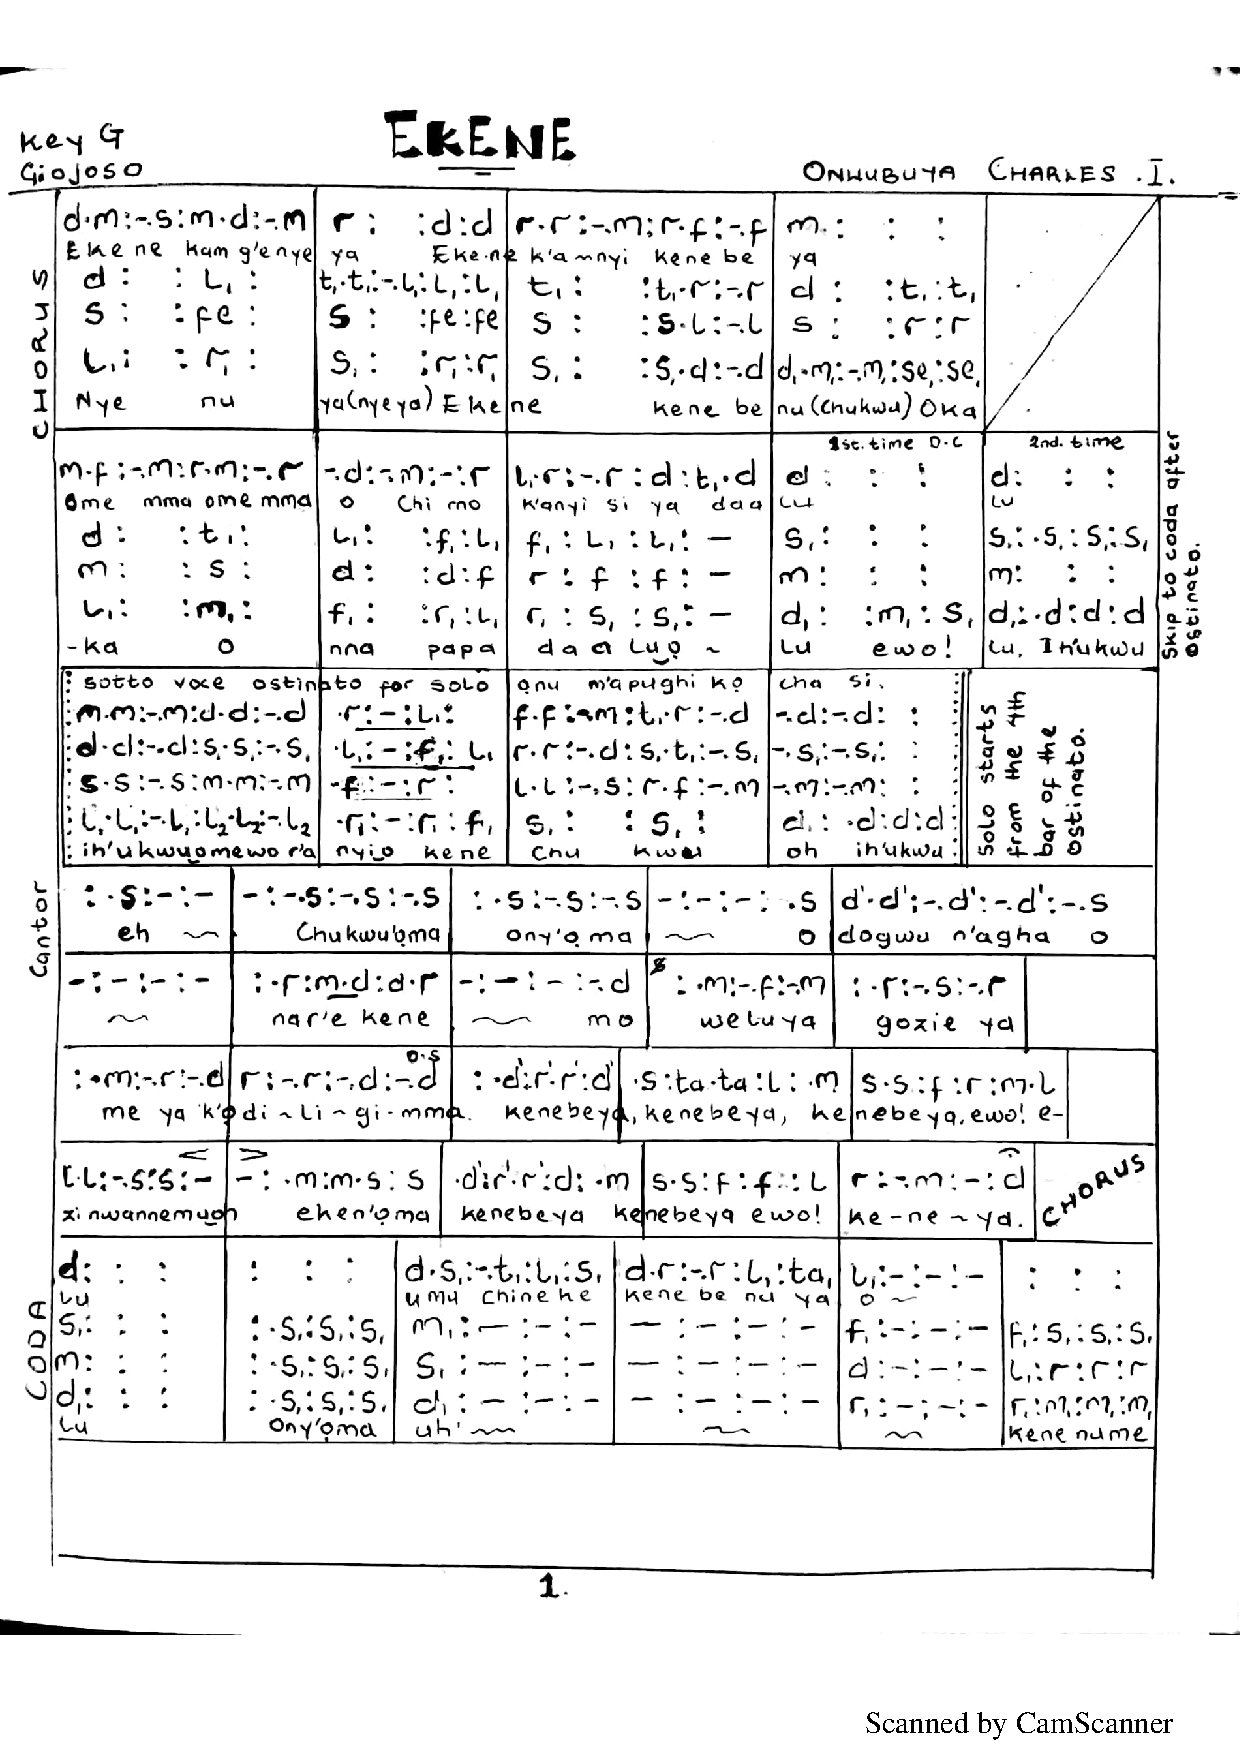 Key G
EKENE
Giojoso
ONWUBUYA CHARLES .I.
CHORUS
d·m:-.s:m·d:-.m | r : :d:d | r·r:-.m:r·f:-.f | m : : :
Ekene kam g'enye ya Eke-ne k'a-nyi kene be ya
d : : l₁ : | t₁·t₁:-.l₁:l₁:l₁ | t₁ : :t₁·r:-.r | d : :t₁:t₁
s : : fe : | s : :fe:fe | s : :s·l:-.l | s : :r:r
l₁: : r₁ : | s₁ : :r₁:r₁ | s₁ : :s₁·d:-.d | d₁·m₁:-.m₁:se₁:se₁
Nye nu ya(nyeya) Ekene kene be nu (Chukwu) Oka
1st. time D.C 2nd. time
m·f:-.m:r·m:-.r | -.d:-.m:-:r | l₁·r:-.r:d:t₁·d | d : : : | d: : :
Ome mma ome mma o Chi mo k'anyi si ya daa lu lu
d : :t₁: | l₁: :f₁:l₁ | f₁:l₁:l₁:- | s₁: : : | s₁:·s₁:s₁:s₁
m : : s : | d: :d:f | r:f:f:- | m: : : | m: : :
l₁: :m₁: | f₁: :r₁:l₁ | r₁:s₁:s₁:- | d₁: :m₁:s₁ | d₁:·d:d:d
-ka o nna papa daa lụọ ~ lu ewo! lu, Ih'ukwu
Skip to coda after ostinato.
sotto voce ostinato for solo ọnu m'apughi kọ cha si.
m·m:-.m:d·d:-.d | ·r:-:l₁: | f·f:-.m:t₁·r:-.d | -.d:-.d: :
d·d:-.d:s₁·s₁:-.s₁ | ·l₁:-:f₁:l₁ | r·r:-.d:s₁·t₁:-.s₁ | -.s₁:-.s₁: :
s·s:-.s:m·m:-.m | ·f:-:r: | l·l:-.s:r·f:-.m | -.m:-.m: :
l₁·l₁:-.l₁:l₂·l₂:-.l₂ | ·r₁:-:r₁:f₁ | s₁: :s₁: | d₁: ·d:d:d
ih'ukwuomewo r'a nyịọ kene Chu kwu oh ih'ukwu
Solo starts from the 4th bar of the ostinato.
Cantor
: ·s:-:- | -:-.s:-.s:-.s | : ·s:-.s:-.s | -:-:-: ·s | d'·d':-.d':-.d':-.s
eh ~ Chukwu'ọma ony'ọma ~ o dogwu n'agha o
-:-:-:- | : ·r:m·d:d·r | -:-:-:-.d | : ·m:-.f:-.m | : ·r:-.s:-.r
~ nar'e kene ~ mo weluya gozie ya
D.S
: ·m:-.r:-.d | r:-.r:-.d:-.d | : ·d':r'·r':d' | ·s:ta·ta:l:·m | s·s:f:r:m·l
me ya k'ọ di ~ li ~ gi-mma. kenebeya, kenebeya, kenebeya, ewo! e-
l·l:-.s:s:- | -: ·m:m·s:s | ·d':r'·r':d':·m | s·s:f:f:l | r:-.m:-:d
zi nwannemuoh eken'ọma kenebeya kenebeya ewo! ke-ne~ya.
CHORUS
CODA
d: : : | : : : | d·s₁:-.t₁:l₁:s₁ | d·r:-.r:l₁:ta₁ | l₁:-:-:- | : : :
lu umu Chineke kene be nu ya o ~
s₁: : : | : ·s₁:s₁:s₁ | m₁:-:-:- | -:-:-:- | f₁:-:-:- | f₁:s₁:s₁:s₁
m: : : | : ·s₁:s₁:s₁ | s₁:-:-:- | -:-:-:- | d:-:-:- | l₁:r:r:r
d₁: : : | : ·s₁:s₁:s₁ | d₁:-:-:- | -:-:-:- | r₁:-:-:- | r₁:m₁:m₁:m₁
lu Ony'ọma uh' ~ ~ ~ kene nu me
1.
Scanned by CamScanner